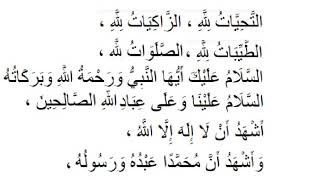 التَّحِيَّاتُ لِلَّهِ ، الزَّاكِيَاتُ لِلَّهِ ،
الطَّيِّبَاتُ لِلَّهِ ، الصَّلَوَاتُ لِلَّهِ ،
السَّلَامُ عَلَيْكَ أَيُّهَا النَّبِيُّ وَرَحْمَةُ اللَّهِ وَبَرَكَاتُهُ
السَّلَامُ عَلَيْنَا وَعَلَى عِبَادِ اللَّهِ الصَّالِحِينَ ،
أَشْهَدُ أَنْ لَا إِلَهَ إِلَّا اللَّهُ ،
وَأَشْهَدُ أَنَّ مُحَمَّدًا عَبْدُهُ وَرَسُولُهُ ،